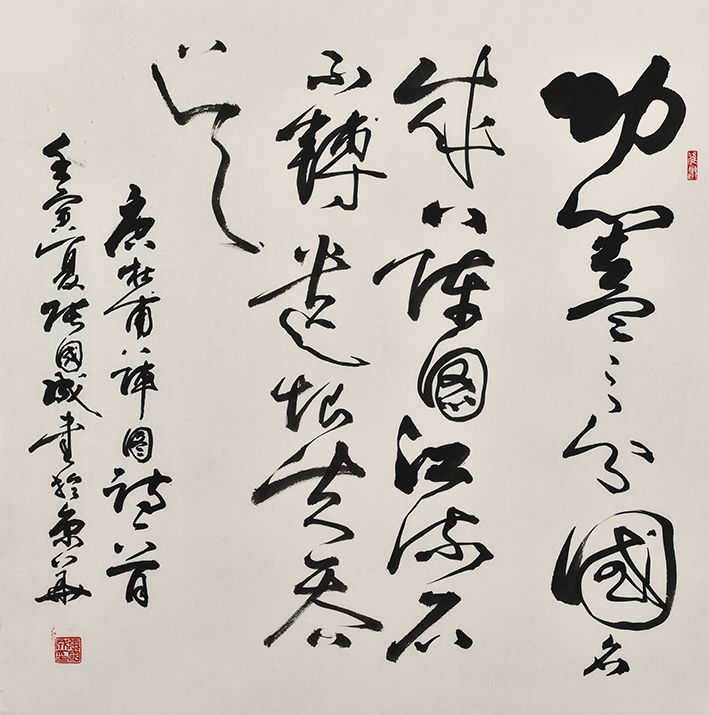 功蓋三分國名
成八陣圖江流石
不轉遺恨失吞
吳
唐杜甫八陣圖詩一首
壬寅夏張國成書於京華